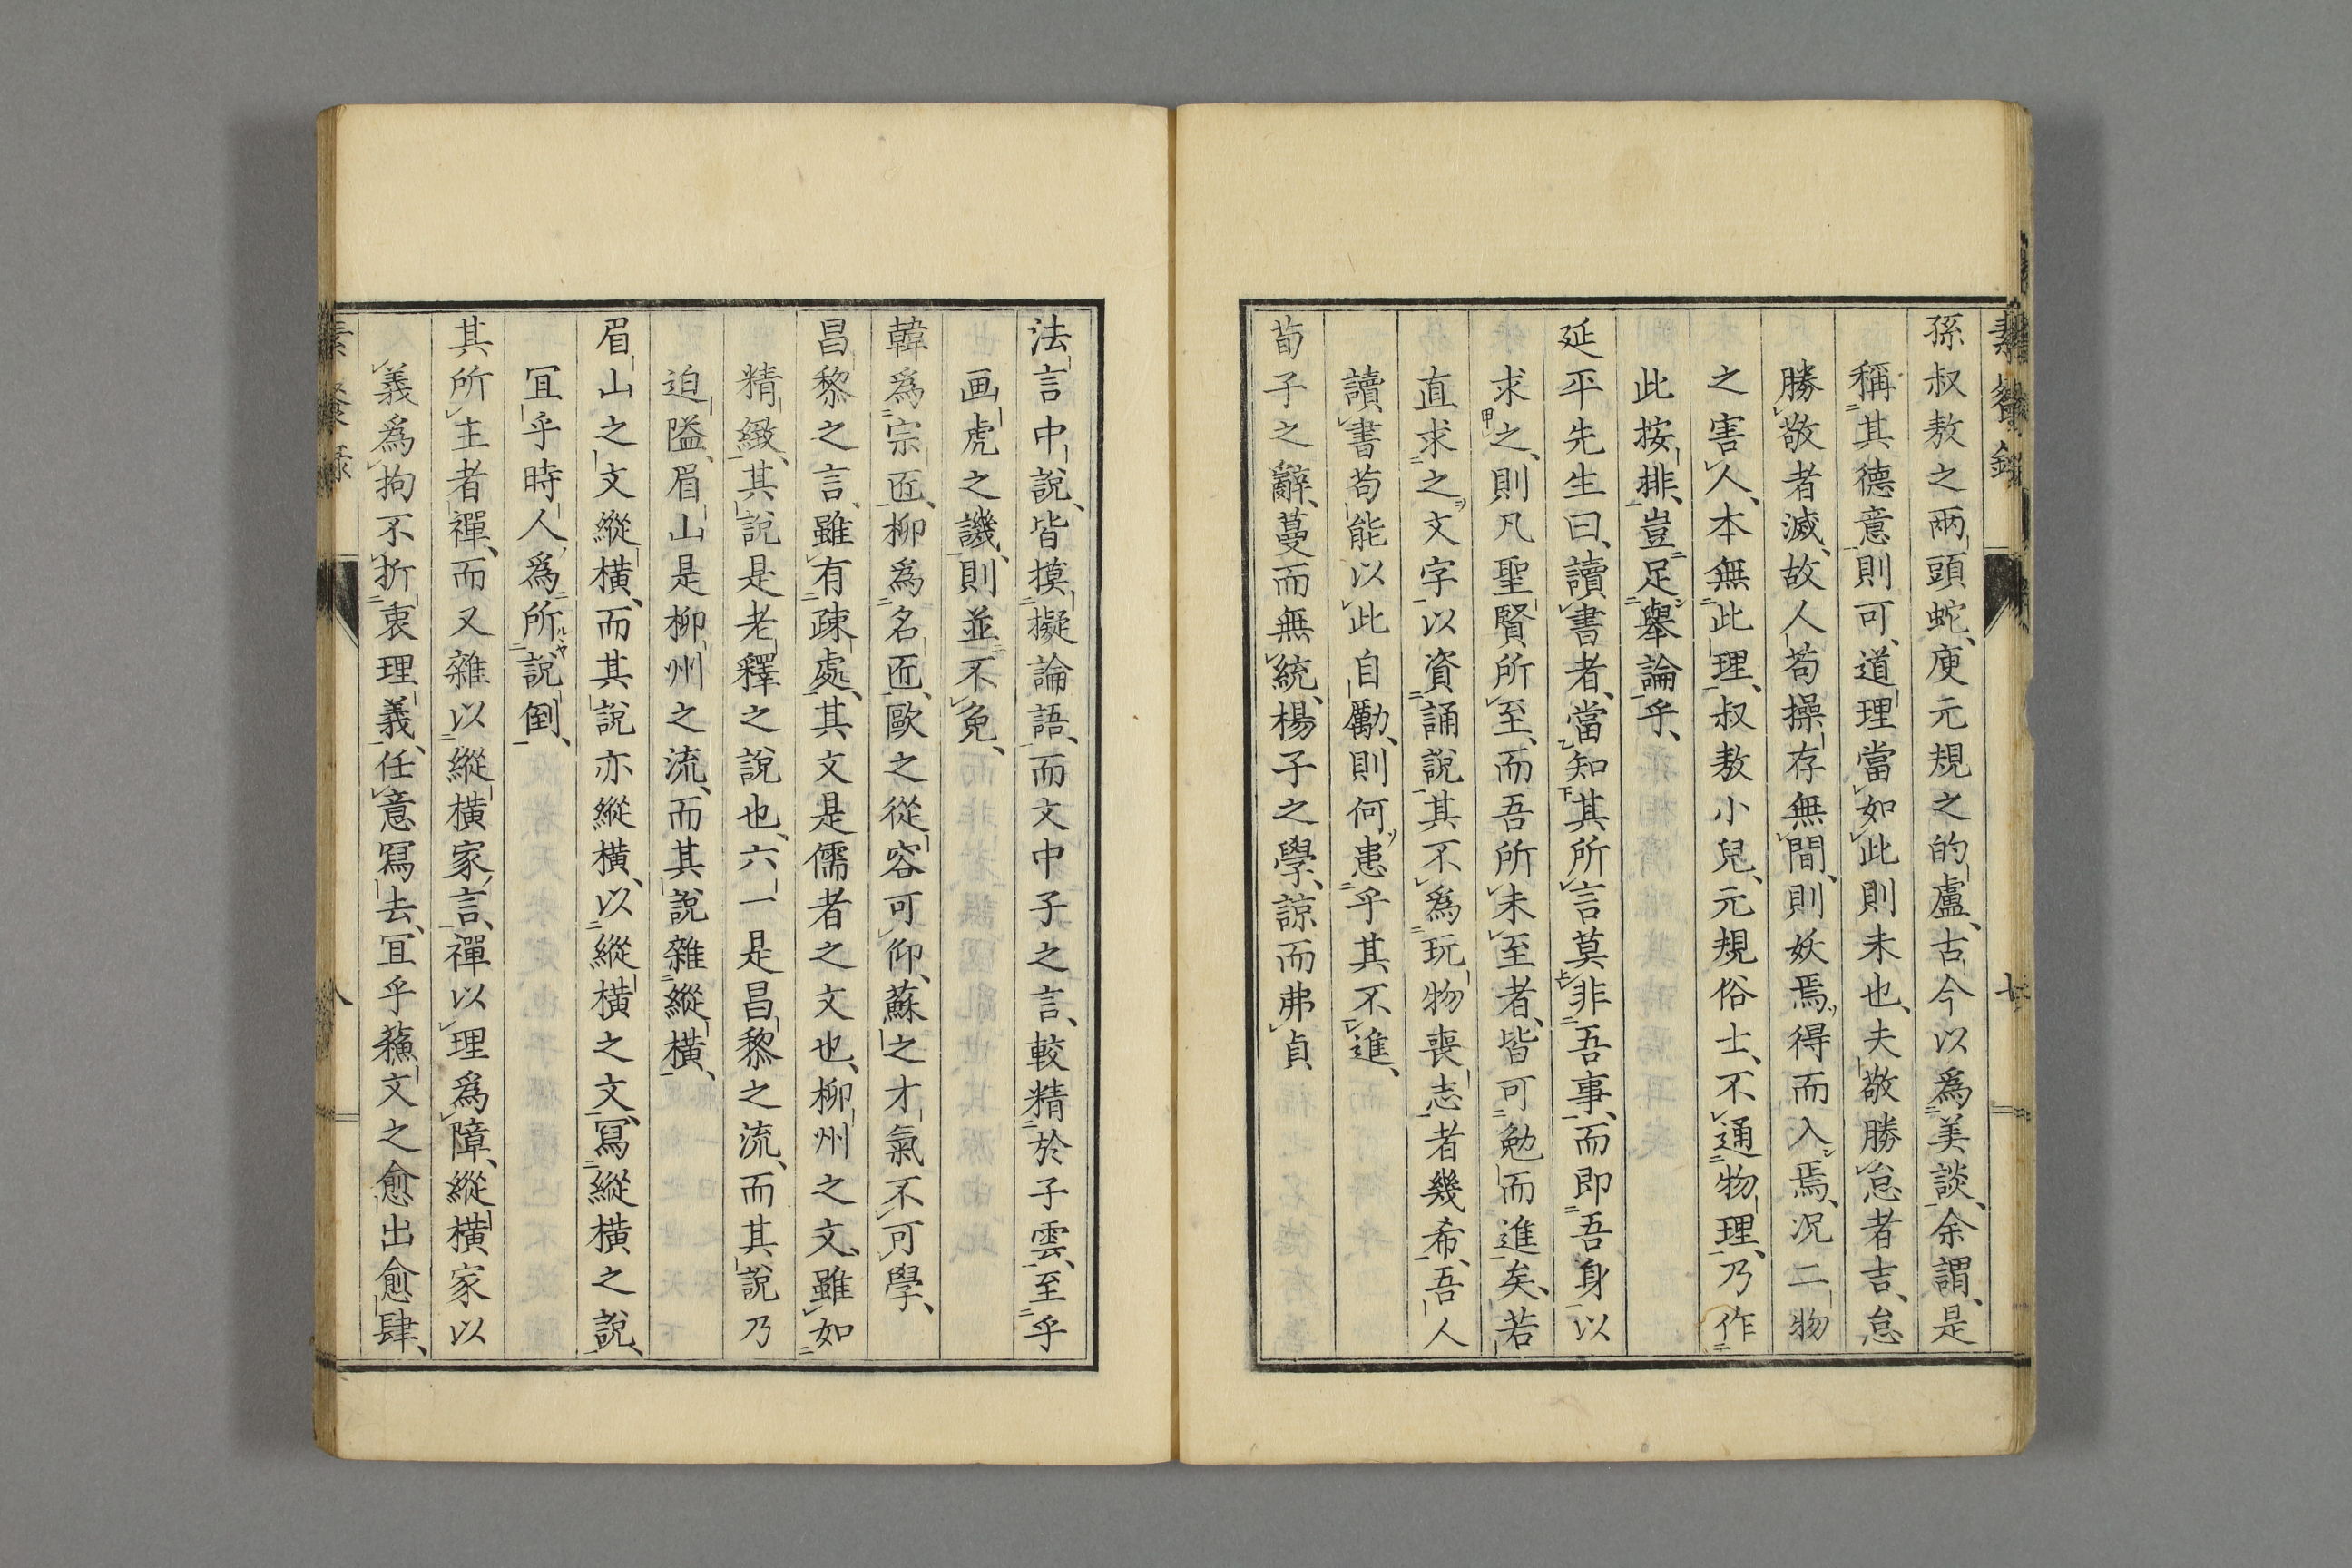 孫叔敖之兩頭蛇、庾元規之的盧、古今以爲美談、余謂、是
稱其德意則可、道理當如此則未也、夫敬勝怠者吉、怠
勝敬者滅、故人苟操存無間、則妖焉得而入焉、况二物
之害人、本無此理、叔敖小兒、元規俗士、不通物理、乃作
此按排、豈足舉論乎、
延平先生曰、讀書者、當知其所言莫非吾事、而即吾身以
求之、則凡聖賢所至、而吾所未至者、皆可勉而進矣、若
直求之文字、以資誦說、其不爲玩物喪志者幾希、吾人
讀書苟能以此自勵、則何患乎其不進、
荀子之辭、蔓而無統、楊子之學、諒而弗貞
法言中說、皆摸擬論語、而文中子之言、較精於子雲、至乎
画虎之譏、則並不免、
韓爲宗匠、柳爲名匠、歐之從容可仰、蘇之才氣不可學、
昌黎之言、雖有疎處、其文是儒者之文也、柳州之文、雖如
精緻、其說是老釋之說也、六一是昌黎之流、而其說乃
迫隘、眉山是柳州之流、而其說雜縱橫、
眉山之文縱橫、而其說亦縱橫、以縱橫之文、寫縱橫之說、
冝乎時人爲所說倒、
其所主者禪、而又雜以縱橫家言、禪以理爲障、縱橫家以
義爲拘不折衷理義、任意寫去、冝乎蘓文之愈出愈肆、
八